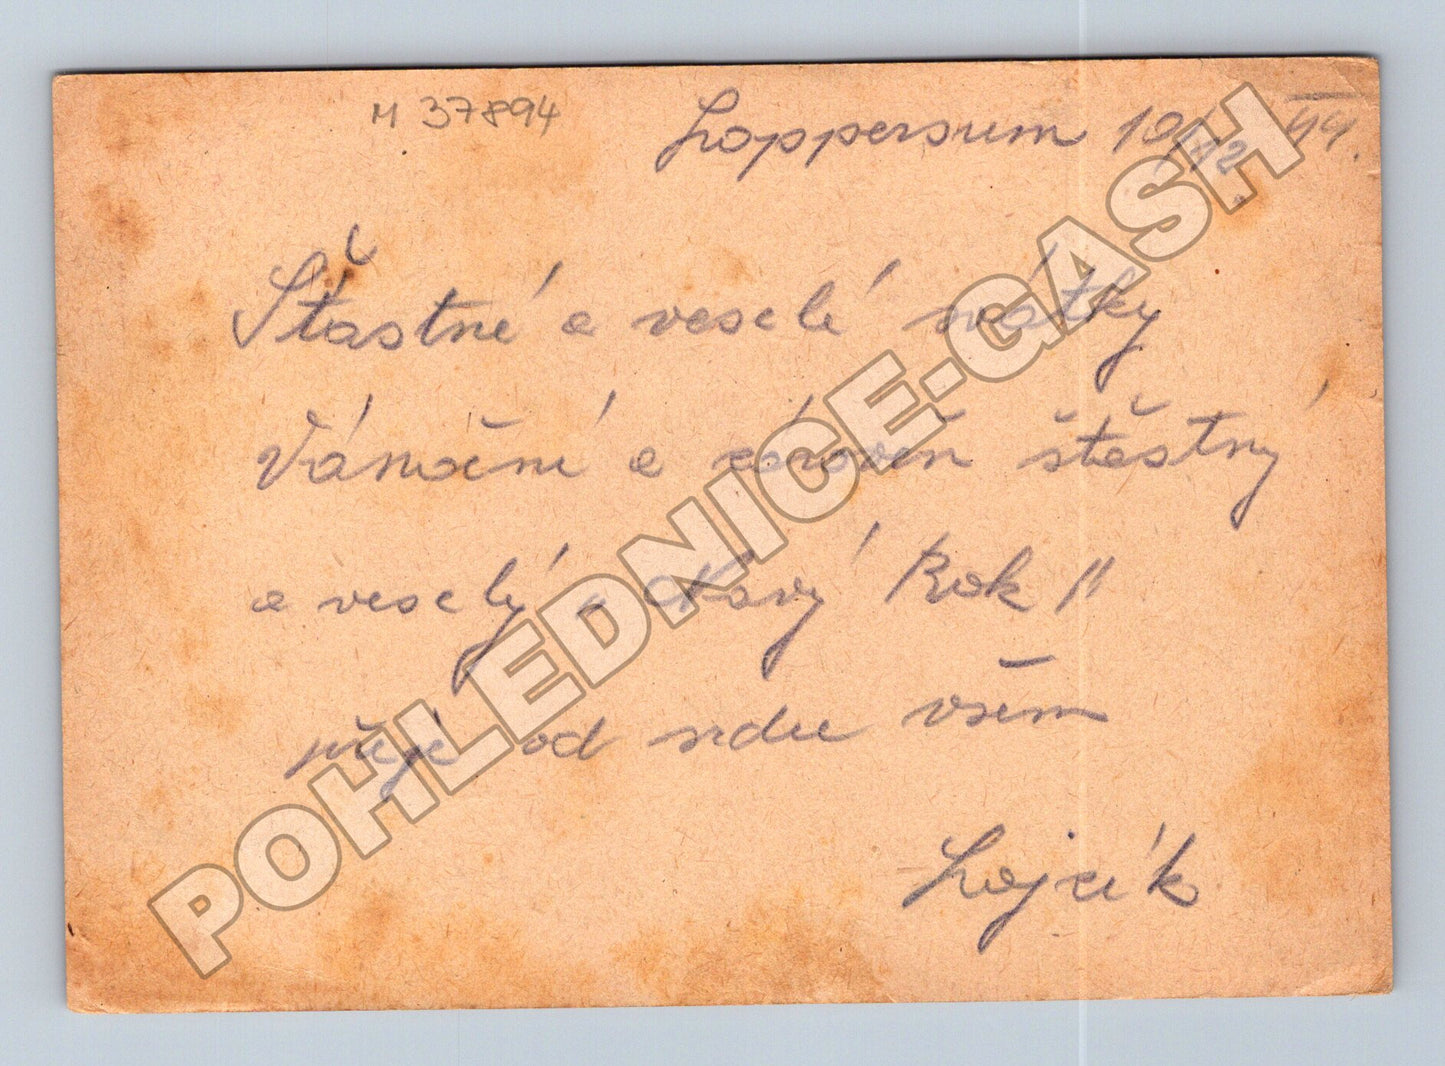 M 37894
Loppersum 10/12 44.
Šťastné a veselé svátky
Vánoční a zároveň štěstný
a veselý a Nový Rok!!
přeje od srdce všem
Lojzík
POHLEDNICE-GASH